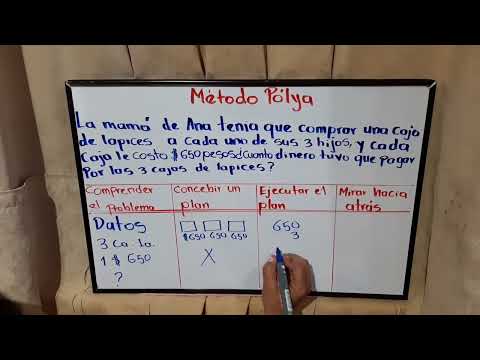 Método Pólya
La mamá de Ana tenia que comprar una caja
de lapices a cada uno de sus 3 hijos, y cada
caja le costo $650 pesos ¿Cuanto dinero tuvo que pagar
por las 3 cajas de lapices?
Comprender el problema
Concebir un plan
Ejecutar el plan
Mirar hacia atrás
Datos
3 ca. la.
1 $ 650
?
$650 650 650
X
650
3